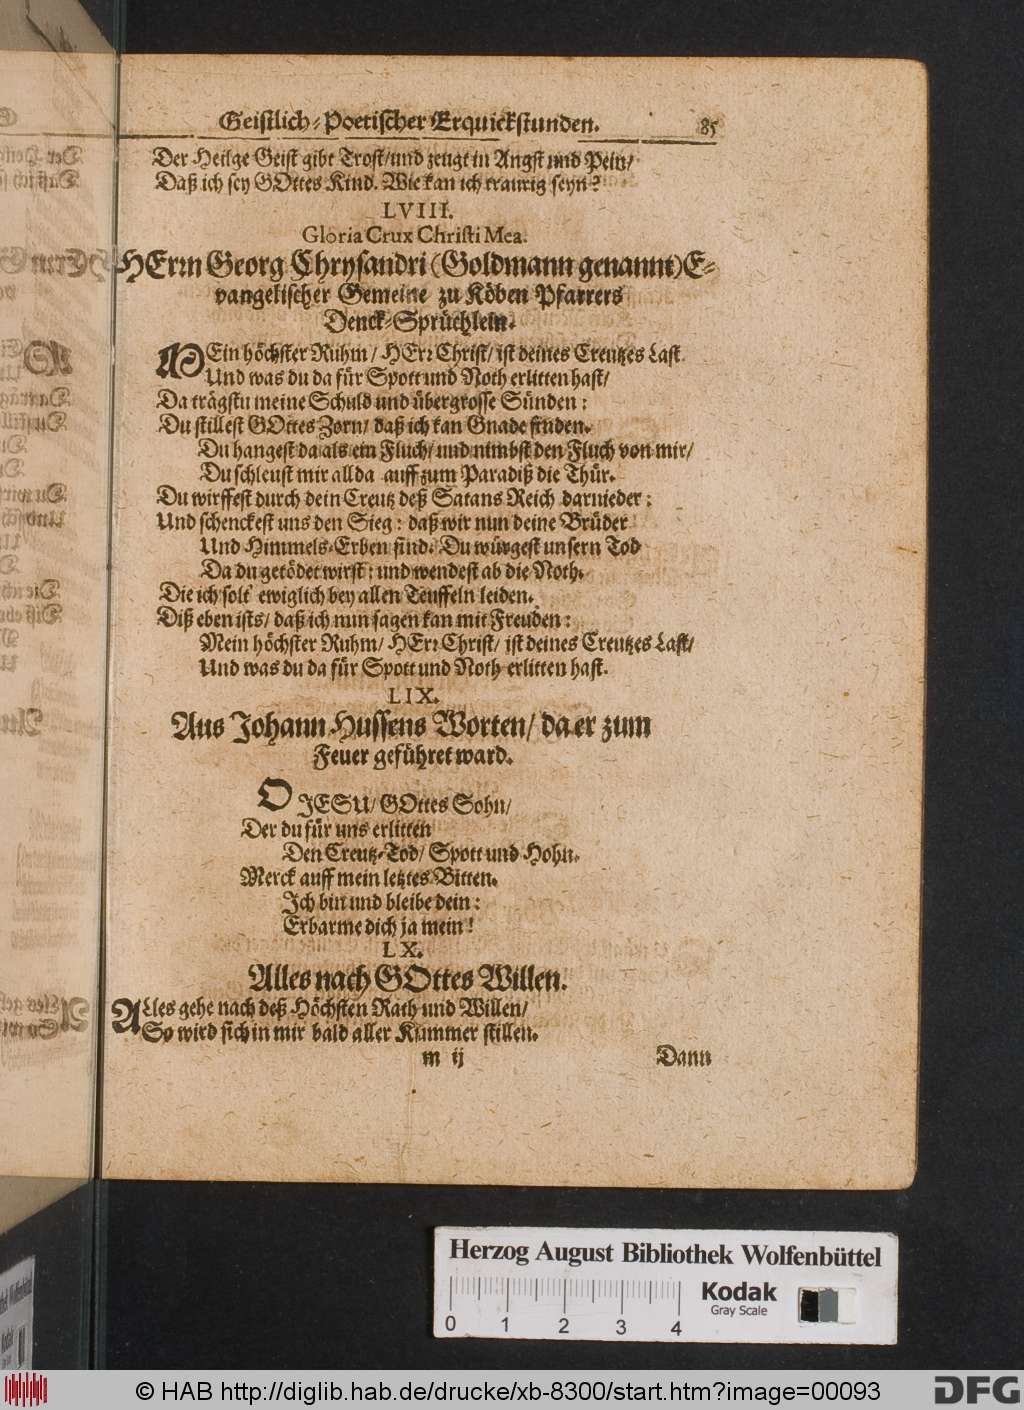 Geistlich-Poetischer Erquickstunden. 85
Der Heilge Geist gibt Trost/und zeugt in Angst und Pein/
Daß ich sey GOttes Kind. Wie kan ich traurig seyn?
LVIII.
Gloria Crux Christi Mea.
HErrn Georg Chrysandri (Goldmann genannt) E-
vangelischer Gemeine zu Köben Pfarrers
Denck-Sprüchlein.
MEin höchster Ruhm/ HErr Christ/ ist deines Creutzes Last
Und was du da für Spott und Noth erlitten hast/
Da trägstu meine Schuld und übergrosse Sünden:
Du stillest GOttes Zorn/ daß ich kan Gnade finden.
Du hangest da als ein Fluch/ und nimbst den Fluch von mir/
Du schleust mir allda auff zum Paradiß die Thür.
Du wirffest durch dein Creutz deß Satans Reich darnieder:
Und schenckest uns den Sieg: daß wir nun deine Brüder
Und Himmels-Erben sind. Du würgest unsern Tod
Da du getödet wirst: und wendest ab die Noth.
Die ich solt' ewiglich bey allen Teuffeln leiden.
Diß eben ists/ daß ich nun sagen kan mit Freuden:
Mein höchster Ruhm/ HErr Christ/ ist deines Creutzes Last/
Und was du da für Spott und Noth erlitten hast.
LIX.
Aus Johann Hussens Worten/ da er zum
Feuer geführet ward.
O JESU/ GOttes Sohn/
Der du für uns erlitten
Den Creutz-Tod/ Spott und Hohn.
Merck auff mein letztes Bitten.
Ich bin und bleibe dein:
Erbarme dich ja mein!
LX.
Alles nach GOttes Willen.
ALles gehe nach deß Höchsten Rath und Willen/
So wird sich in mir bald aller Kummer stillen.
m ij Dann
Herzog August Bibliothek Wolfenbüttel
Kodak
Gray Scale
0 1 2 3 4
© HAB http://diglib.hab.de/drucke/xb-8300/start.htm?image=00093
DFG